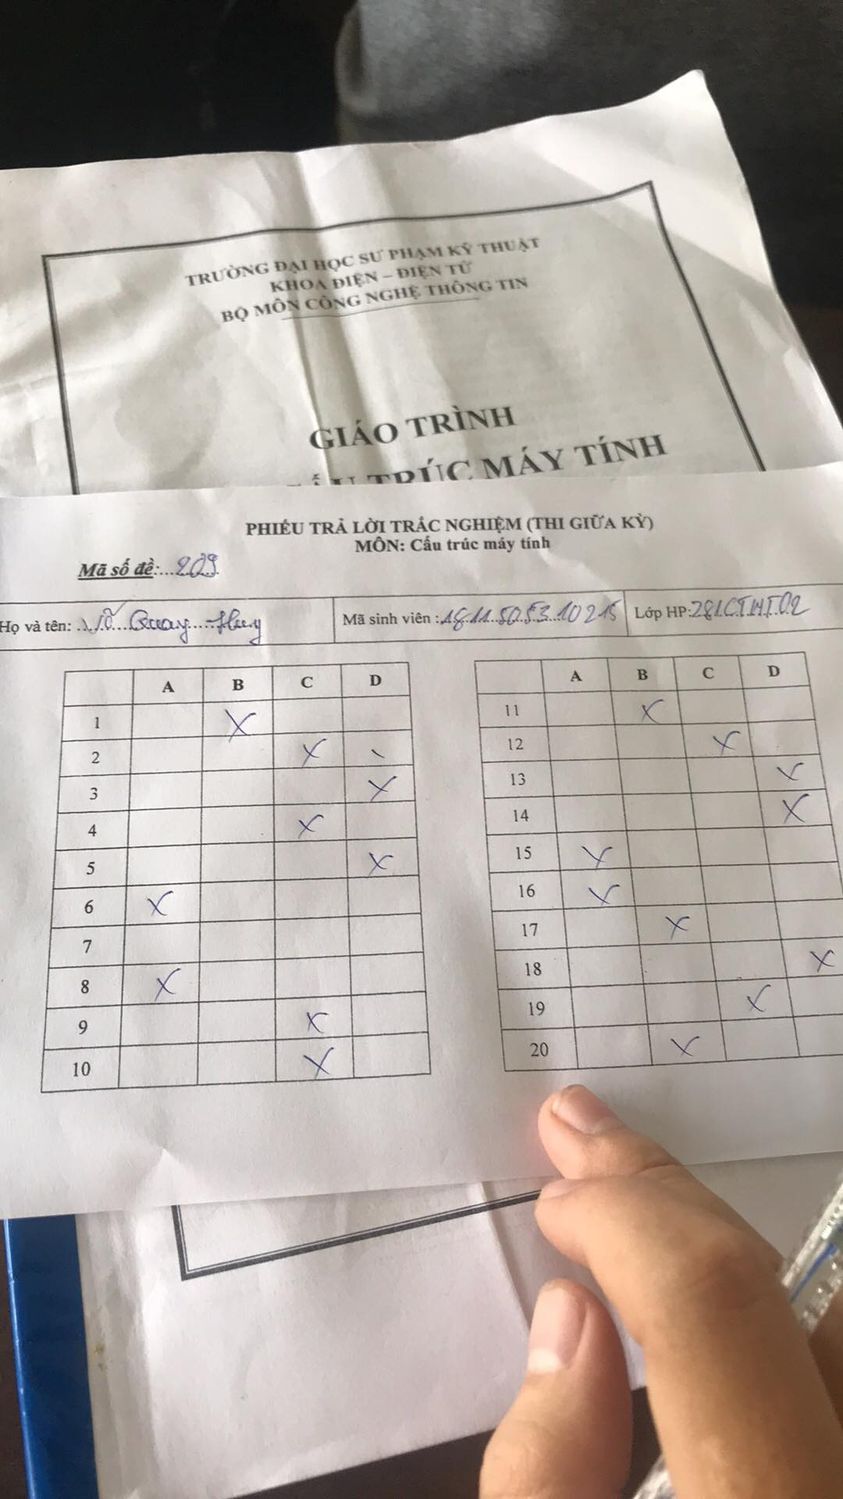 TRƯỜNG ĐẠI HỌC SƯ PHẠM KỸ THUẬT
KHOA ĐIỆN – ĐIỆN TỬ
BỘ MÔN CÔNG NGHỆ THÔNG TIN
GIÁO TRÌNH
TRÚC MÁY TÍNH
PHIẾU TRẢ LỜI TRẮC NGHIỆM (THI GIỮA KỲ)
MÔN: Cấu trúc máy tính
Mã số đề:...209
Họ và tên: ..Võ...Quang....Huy
Mã sinh viên :1811.50.53.10215
Lớp HP:281CTMT02
A B C D
1 X
2 X
3 X
4 X
5 X
6 X
7
8 X
9 X
10 X
A B C D
11 X
12 X
13 X
14 X
15 X
16 X
17 X
18 X
19 X
20 X